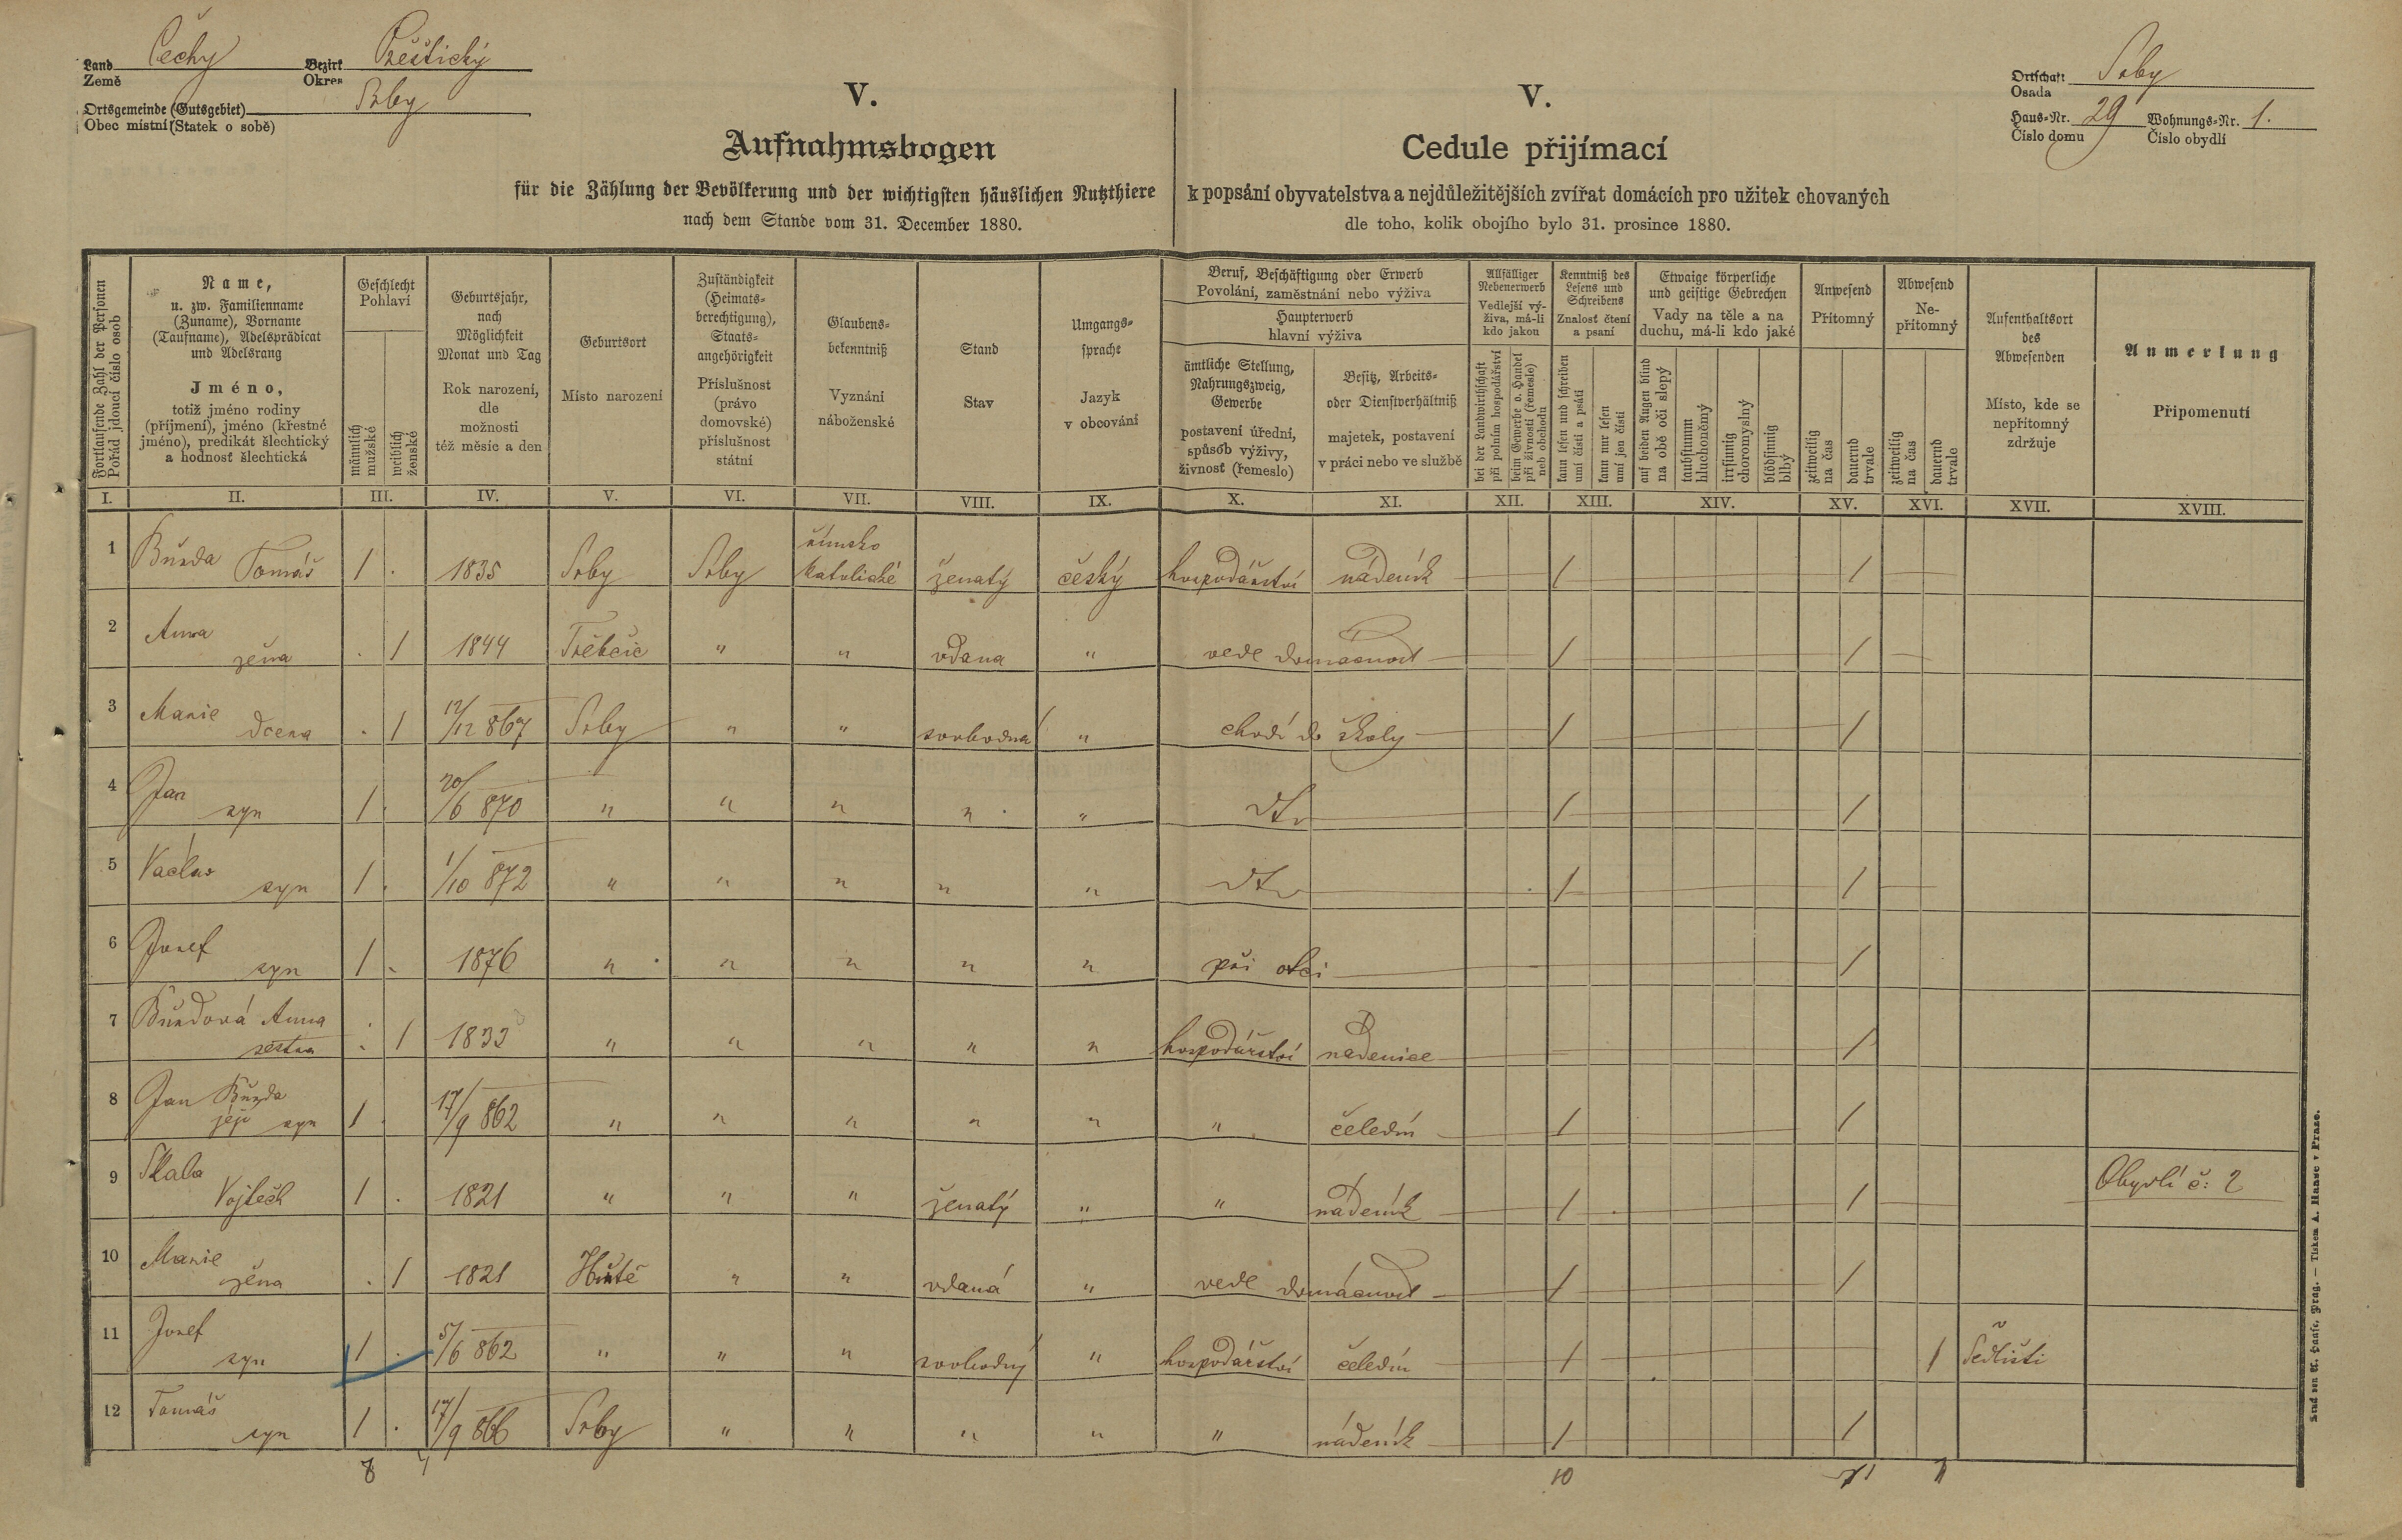 Land Čechy Bezirk Přeštický
Země Okres
Ortsgemeinde (Gutsgebiet) Srby
Obec místní (Statek o sobě)
Ortschaft Srby
Osada
Haus-Nr. 29 Wohnungs-Nr. 1.
Číslo domu Číslo obydlí
V.
Aufnahmsbogen
für die Zählung der Bevölkerung und der wichtigsten häuslichen Nutzthiere
nach dem Stande vom 31. December 1880.
V.
Cedule přijímací
k popsání obyvatelstva a nejdůležitějších zvířat domácích pro užitek chovaných
dle toho, kolik obojího bylo 31. prosince 1880.
Fortlaufende Zahl der Personen
Pořád jdoucí číslo osob
Name,
u. zw. Familienname
(Zuname), Vorname
(Taufname), Adelsprädicat
und Adelsrang
Jméno,
totiž jméno rodiny
(příjmení), jméno (křestné
jméno), predikát šlechtický
a hodnosť šlechtická
Geschlecht
Pohlaví
männlich
mužské
weiblich
ženské
Geburtsjahr,
nach
Möglichkeit
Monat und Tag
Rok narození,
dle
možnosti
též měsíc a den
Geburtsort
Místo narození
Zuständigkeit
(Heimats-
berechtigung),
Staats-
angehörigkeit
Příslušnost
(právo
domovské)
příslušnost
státní
Glaubens-
bekenntniß
Vyznání
náboženské
Stand
Stav
Umgangs-
sprache
Jazyk
v obcování
Beruf, Beschäftigung oder Erwerb
Povolání, zaměstnání nebo výživa
Haupterwerb
hlavní výživa
ämtliche Stellung,
Nahrungszweig,
Gewerbe
postavení úřední,
spůsob výživy,
živnosť (řemeslo)
Besitz, Arbeits-
oder Dienstverhältniß
majetek, postavení
v práci nebo ve službě
Allfälliger
Nebenerwerb
Vedlejší vý-
živa, má-li
kdo jakou
bei der Landwirthschaft
při polním hospodářství
beim Gewerbe o. Handel
při živnosti (řemesle)
neb obchodu
Kenntniß des
Lesens und
Schreibens
Znalosť čtení
a psaní
kann lesen und schreiben
umí čísti a psáti
kann nur lesen
umí jen čísti
Etwaige körperliche
und geistige Gebrechen
Vady na těle a na
duchu, má-li kdo jaké
auf beiden Augen blind
na obě oči slepý
taubstumm
hluchoněmý
irrsinnig
choromyslný
blödsinnig
blbý
Anwesend
Přítomný
zeitweilig
na čas
dauernd
trvale
Abwesend
Ne-
přítomný
zeitweilig
na čas
dauernd
trvale
Aufenthaltsort
des
Abwesenden
Místo, kde se
nepřítomný
zdržuje
Anmerkung
Připomenutí
I. II. III. IV. V. VI. VII. VIII. IX. X. XI. XII. XIII. XIV. XV. XVI. XVII. XVIII.
1 Tomáš 1 . 1835 Srby Srby římsko
katolické ženatý český hospodářství nádeník 1 1
2 Anna
žena . 1 1844 " " vdana " vede domácnost 1 1
3 Marie
dcera . 1 12/12 867 Srby " " svobodna " chodí do školy 1 1
4 Jan
syn 1 . 20/6 870 " " " " " dto 1 1
5 Václav
syn 1 . 1/10 872 " " " " " dto 1 1
6 Josef
syn 1 . 1876 " " " " " při otci 1
7 Anna
sestra . 1 1833 " " " " " hospodářství nadenice 1
8 Jan
její syn 1 . 17/9 862 " " " " " " čeledín 1 1
9 Skala
Vojtěch 1 . 1821 " " " ženatý " " nadeník 1 1 Obydlí č: 2
10 Marie
žena . 1 1821 Hutě " " vdaná " vede domácnost 1 1
11 Josef
syn 1 . 5/6 862 " " " svobodný " hospodářství čeledín 1 1 Sedlišti
12 Tomáš
syn 1 . 17/9 866 Srby " " " " " nádeník 1 1
8 4 10 11 1
Druck von A. Haase, Prag. — Tiskem A. Haase v Praze.